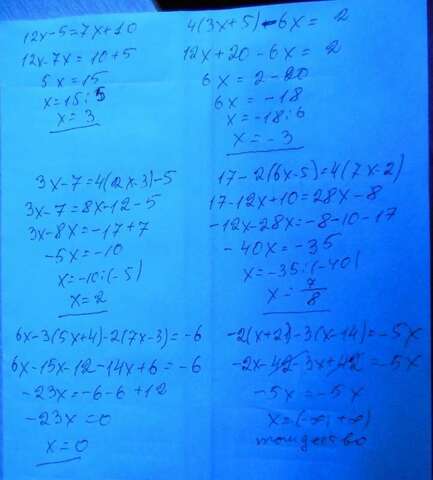 12x-5=7x+10
12x-7x=10+5
5x=15
x=15:5
x=3
4(3x+5)-6x=2
12x+20-6x=2
6x=2-20
6x=-18
x=-18:6
x=-3
3x-7=4(2x-3)-5
3x-7=8x-12-5
3x-8x=-17+7
-5x=-10
x=-10:(-5)
x=2
17-2(6x-5)=4(7x-2)
17-12x+10=28x-8
-12x-28x=-8-10-17
-40x=-35
x=-35:(-40)
x=7/8
6x-3(5x+4)-2(7x-3)=-6
6x-15x-12-14x+6=-6
-23x=-6-6+12
-23x=0
x=0
-2(x+21)-3(x-14)=-5x
-2x-42-3x+42=-5x
-5x=-5x
x=(-∞;+∞)
тождество